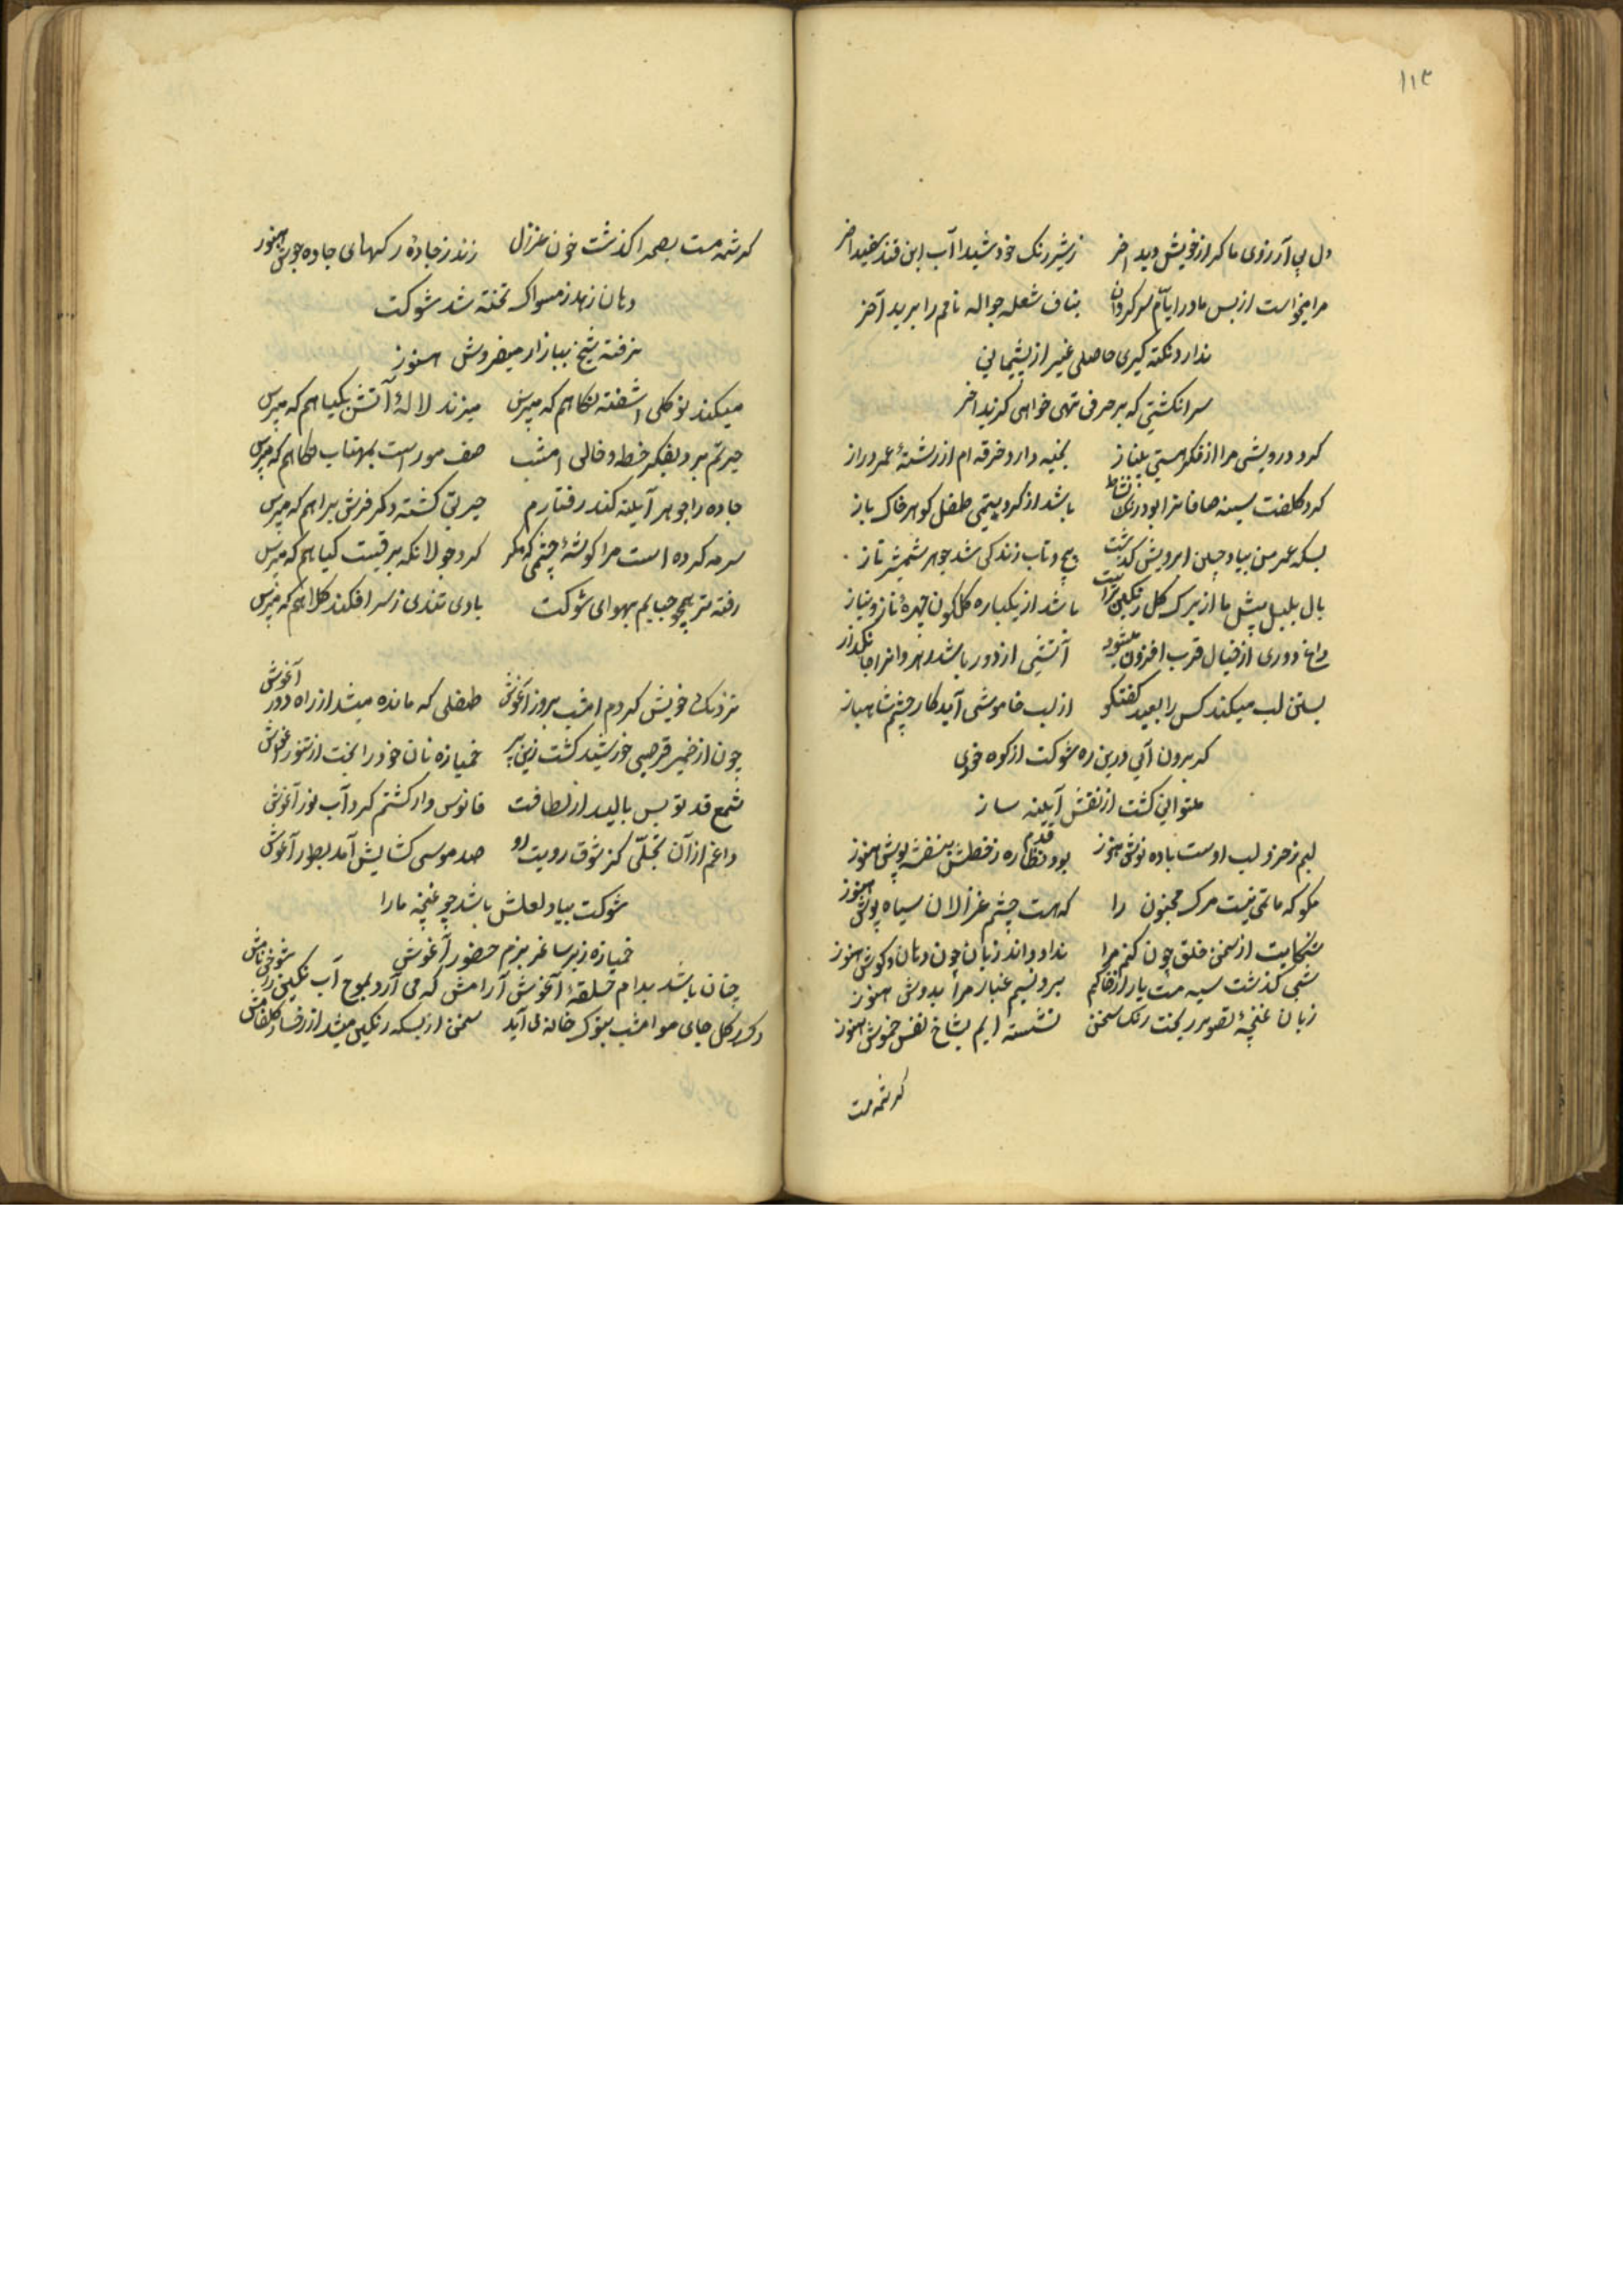 ۱۱۳
دل بی آرزوی ما کر از خویش دید اخر ز شیر رنک خود شید آب این قند سفید اخر
مرا میخواست از بس مادر ایام سرکردان بناف شعله جواله نافم را برید آخر
ندارد نکته کیری حاصلی غیر از پشیمانی
سر انکشتی که بر حرفی نهی خواهی کزید اخر
کرد درویشی مرا از فکر هستی بی نیاز بخیه دارد خرقه ام از رشتهٔ عمر دراز
کرد کلفت سینه صافانرا بود رنک نشاط باشد از کرد یتیمی طفل کوهر خاک باز
بسکه عمر من بیاد چین ابرویش کذشت پیچ و تاب زندکی شد جوهر شمشیر تاز
بال بلبل پیش ما از برک کل رنکین تر است باشد از یکپاره کلکون چهرهٔ ناز و نیاز
داغ دوری از خیال قرب افزون میشود آتشی از دور باشد بهر پروانه جانکداز
بستن لب میکند کس را بعید کفتکو از لب خاموشی آید کار چشم شاهباز
کر برون آیی درین ره شوکت از کوه خودی
میتوانی کشت از نقش آیینه ساز
لبم ز حرز لب اوست باده نوش هنوز بود نظاره ز خطش بنفشه پوش هنوز
مکو که ماتمی نیست مرک مجنون را که هست چشم غزالان سیاه پوش هنوز
شکایت از سخن خلق چون کنم مرا نداده اند زبان چون دهان و کوش هنوز
شبی کذشت سیه مست یار از خاکم برد نسیم غبار مرا بدوش هنوز
زبان غنچهٔ تصویر ریخت رنک سخن نشسته ایم بشاخ نفس خموش هنوز
کرشمه مست
کرشمه مست بصحرا کذشت خون غزال زند ز جادهٔ رکهای جاده جوش هنوز
دهان زهد ز مسواک تخته شد شوکت
نرفته شیخ ببازار میفروش هنوز
میکند نو کلی اشفته نکاهم که مپرس میزند لالهٔ آتش بکیاهم که مپرس
حیرتم برد بفکر خط و خالی امشب صف مور است بمهتاب نکاهم که مپرس
جاده را جوهر آیینه کند رفتارم حیرتی کشته دکر فرش براهم که مپرس
سرمه کرده است مرا کوشهٔ چشمی که مکر کرد جولانکه برقیست کیاهم که مپرس
رفته سر همچو حبابم بهوای شوکت بادی تندی ز سر افکند کلاهم که مپرس
نزدیک خویش کردم امشب بروز آغوش طفلی که مانده میشد از راه دور آغوش
چون از خمیر قرصی خورشید کشت زین بر خمیازه نان خود را پخت از تنور آغوش
شمع قد تو بس بالید از لطافت فانوس وار کشتم کرد آب نور آغوش
داغم از آن تجلی کز شوق رویت او صد موسی کشایش آمد بطور آغوش
شوکت بیاد لعلش باشد چو غنچه ما را
خمیازه زیر ساغر بزم حضور آغوش
چنان باشد بدام حلقهٔ آغوش آرامش که می آرد بموج آب نکین را شوخی نامش
رک کل جای مو امشب بنوک خامه می آید سخن از بسکه رنکین میشد از رخسار کلفامش